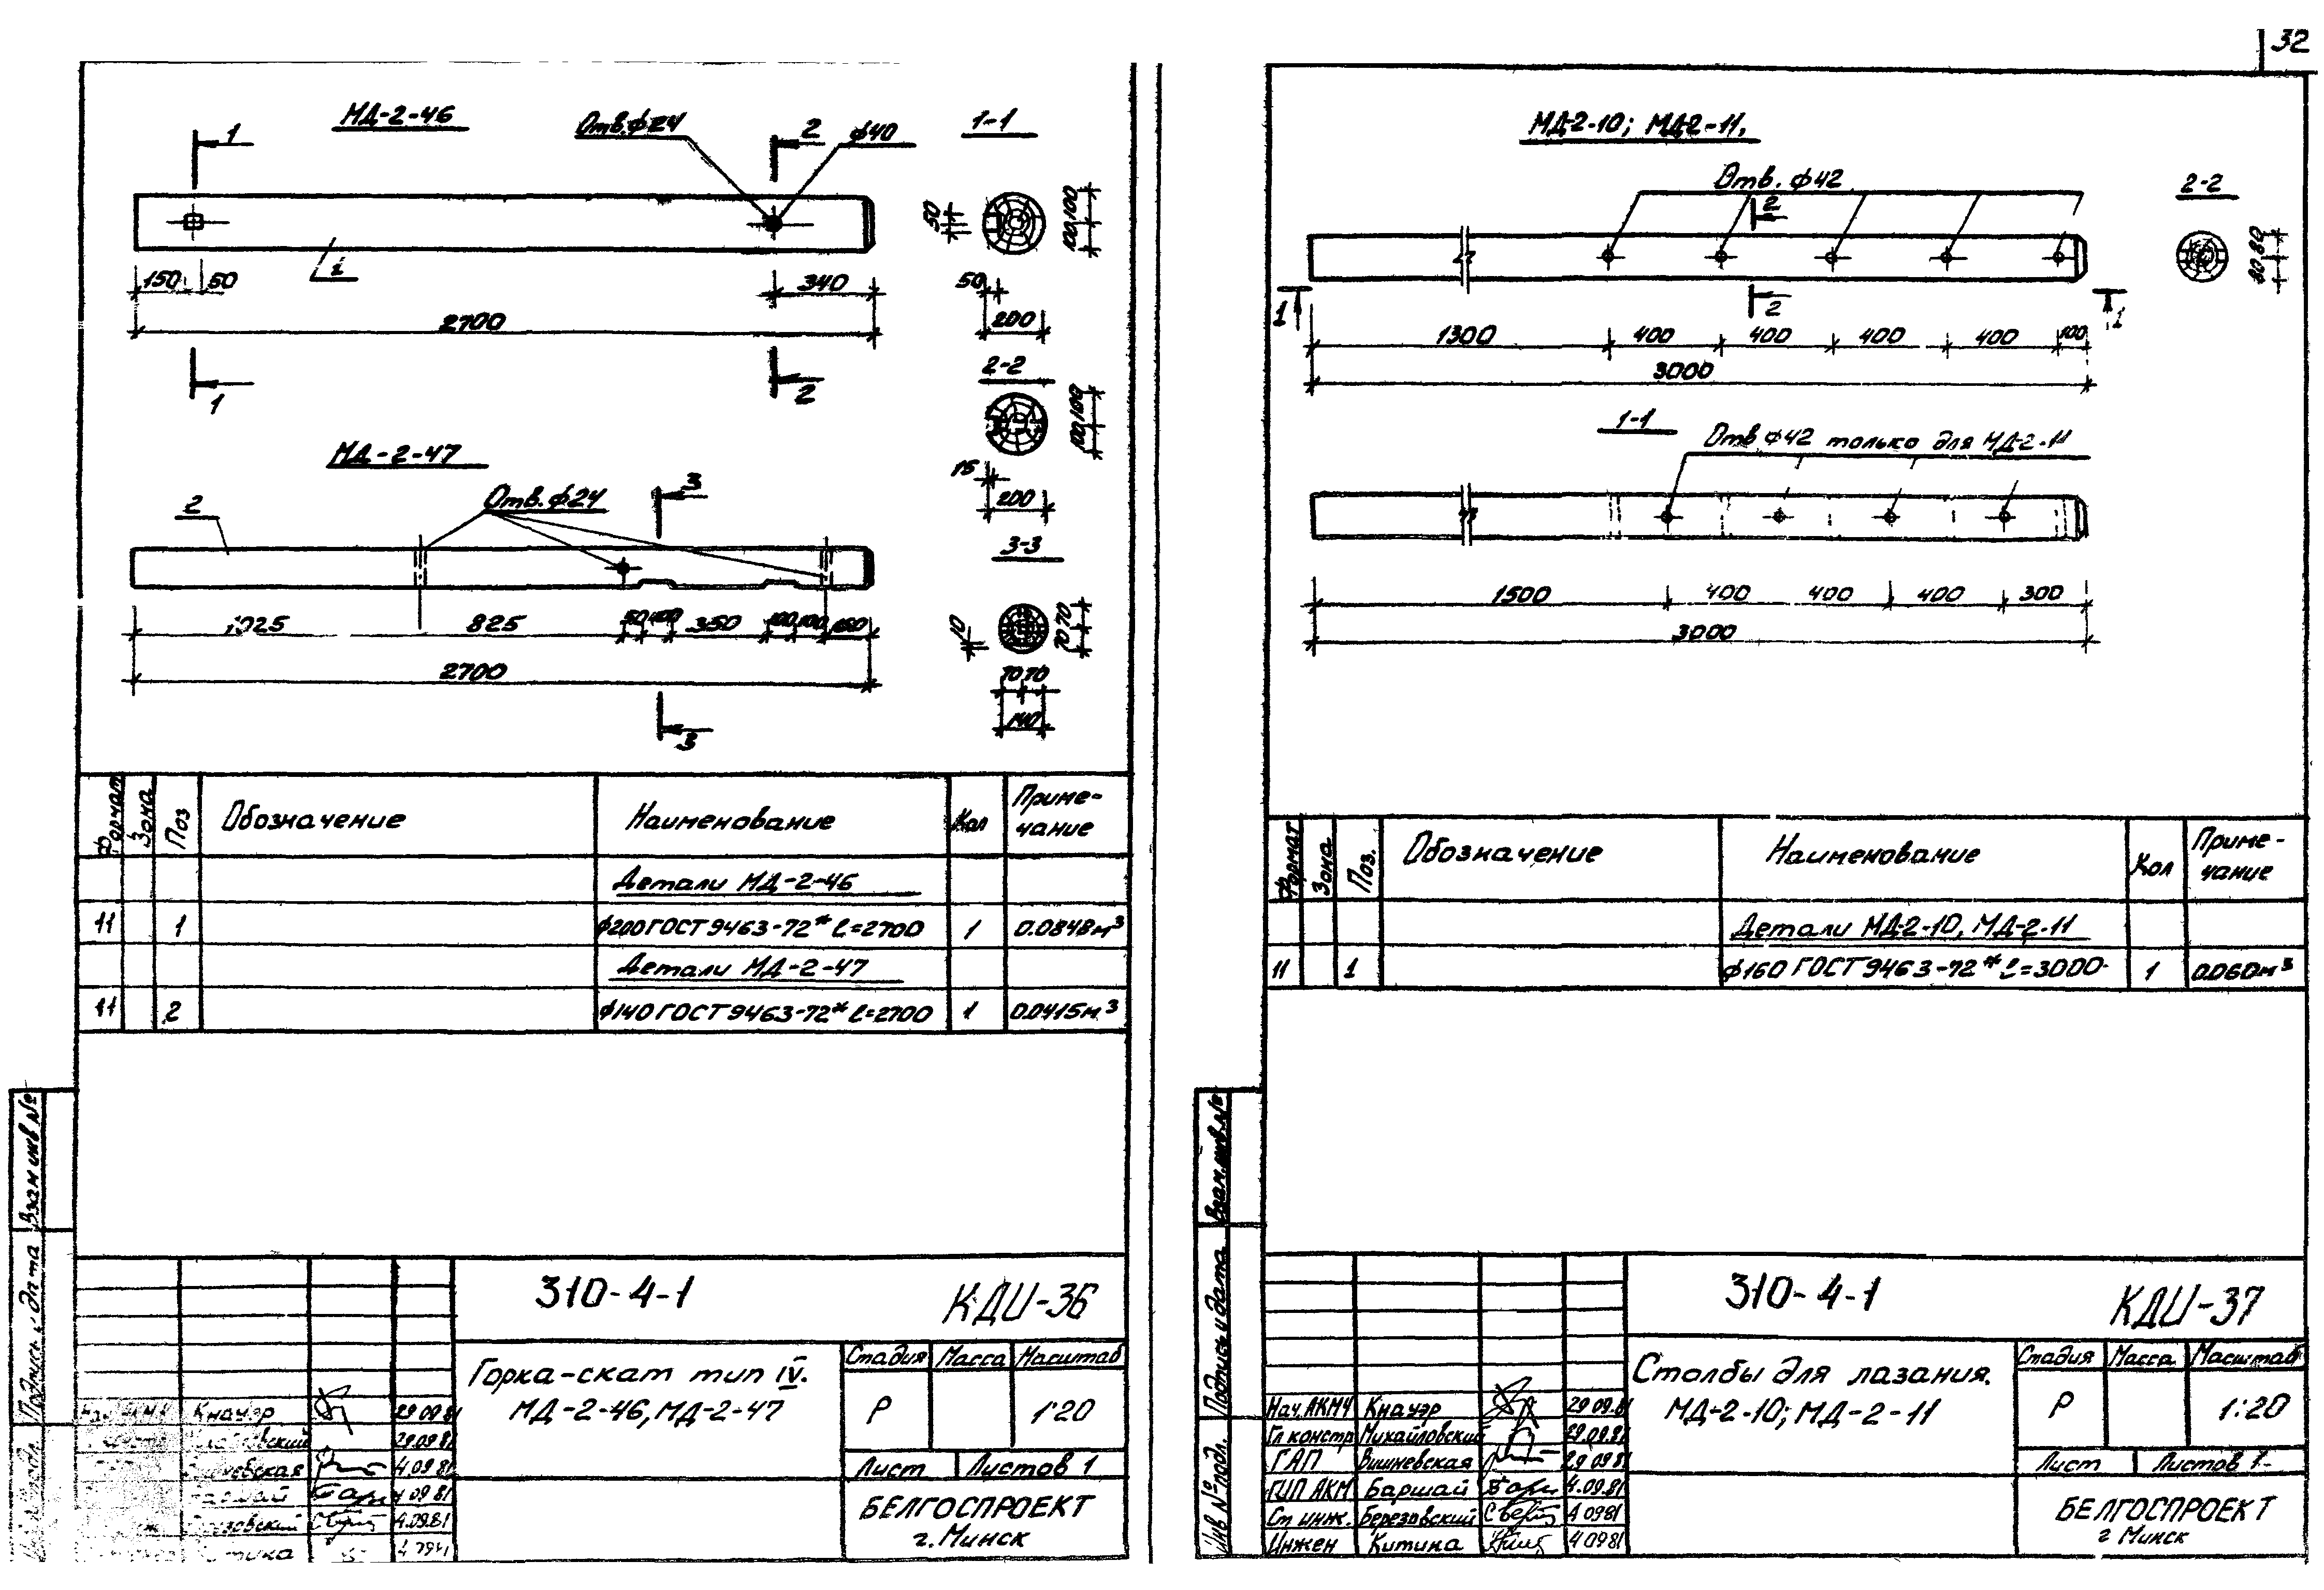 32
МД-2-46
Отв. ф24
ф40
1-1
1
2
50
100 100
1
150 50
340
2700
50
200
1
2
2-2
100 100
15
200
МД-2-47
2
Отв. ф24
3
3-3
10
70 70
1025 825 50 100 350 100 100 150
2700
70 70
140
3
Формат Зона Поз Обозначение Наименование Кол Приме-
чание
Детали МД-2-46
11 1 ф200 ГОСТ 9463-72* ℓ=2700 1 0.0848м³
Детали МД-2-47
11 2 ф140 ГОСТ 9463-72* ℓ=2700 1 0.0415м³
Взам инв №
Подпись и дата
310-4-1 КДИ-36
Горка-скат тип IV.
МД-2-46, МД-2-47
Стадия Масса Масштаб
Р 1:20
Лист Листов 1
БЕЛГОСПРОЕКТ
г. Минск
Кнауэр 29.09.81
29.09.81
4.09.81
4 09 81
4.09.81
МД-2-10; МД-2-11.
Отв. ф42
2
2-2
80 80
1
2
1
1300 400 400 400 400 100
3000
1-1
Отв ф42 только для МД-2-11
1500 400 400 400 300
3000
Формат Зона Поз. Обозначение Наименование Кол Приме-
чание
Детали МД-2-10, МД-2-11
11 1 ф160 ГОСТ 9463-72* ℓ=3000 1 0.060м³
Взам.инв.№
Подпись и дата
Инв № подл.
310-4-1 КДИ-37
Столбы для лазания.
МД-2-10; МД-2-11
Стадия Масса Масштаб
Р 1:20
Лист Листов 1
БЕЛГОСПРОЕКТ
г Минск
Нач. АКМ4 Кнауэр 29 09.81
Гл констр Михайловский 29.09.81
ГАП Вишневская 29 09 81
ГИП АКМ Баршай 4.09.81
Ст инж. Березовский 4 0981
Инжен Китина 4 0981